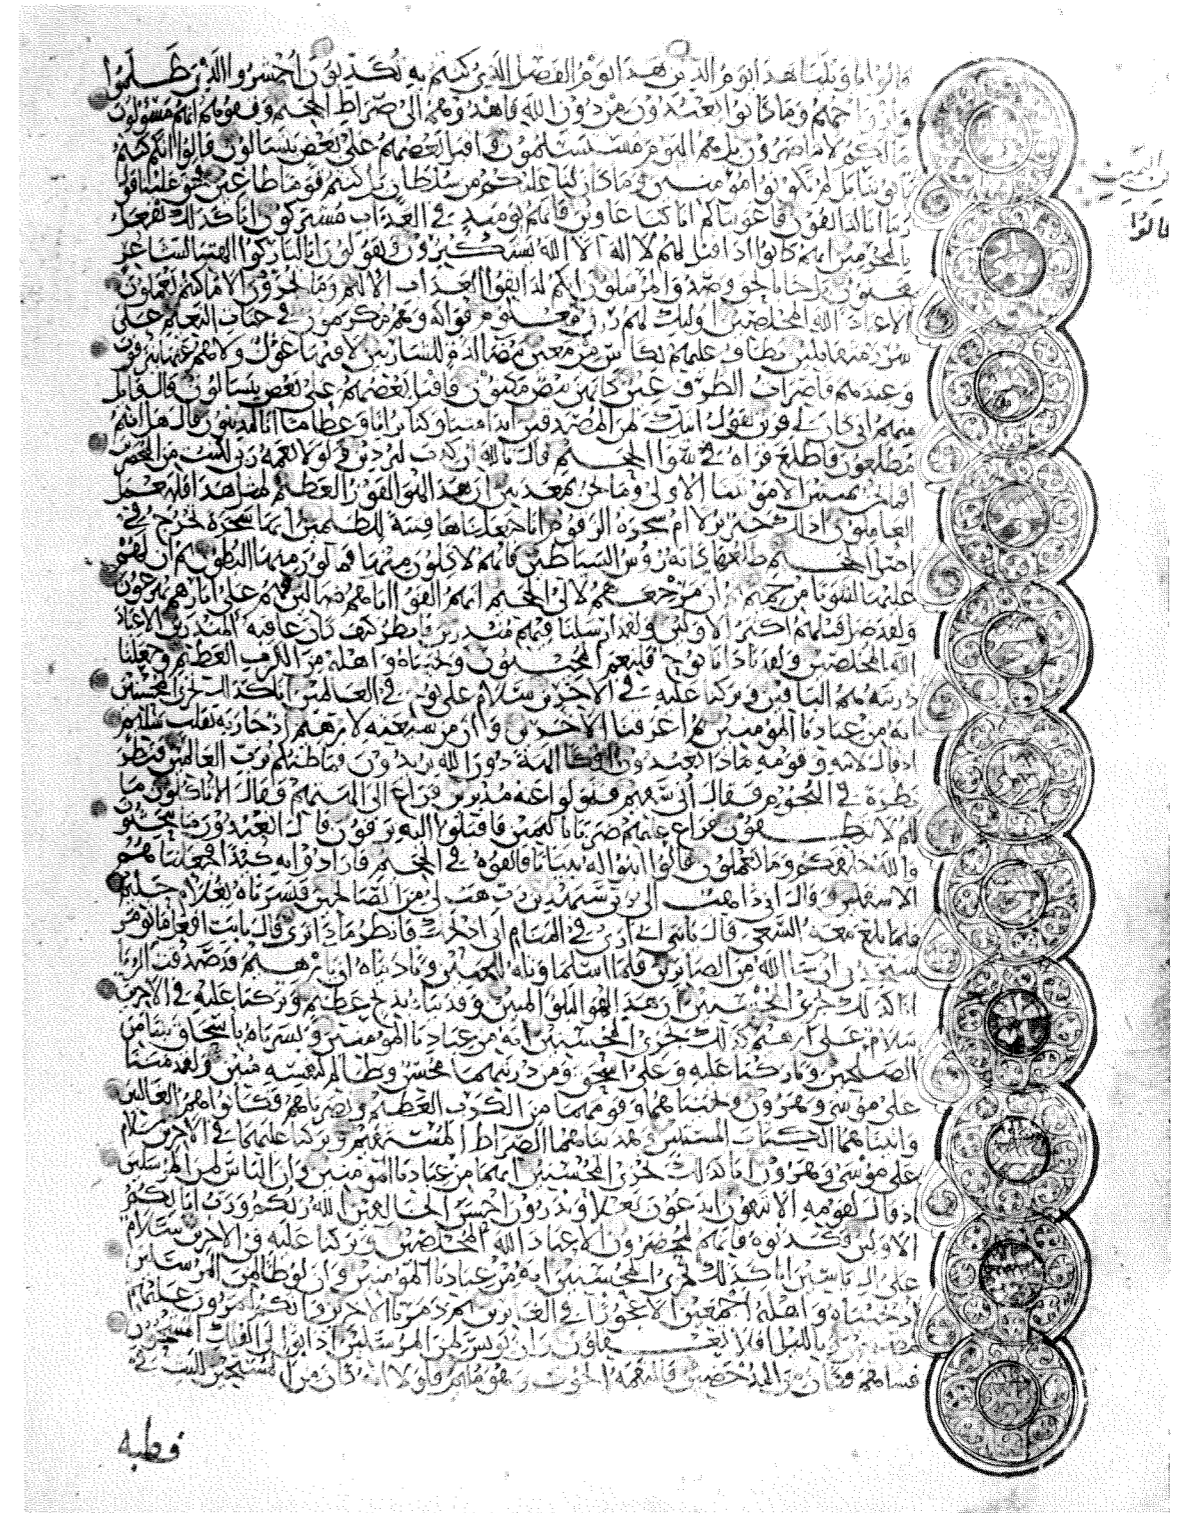 قالوا يا ويلنا هذا يوم الدين هذا يوم الفصل الذي كنتم به تكذبون احشروا الذين ظلموا
وازواجهم وما كانوا يعبدون من دون الله فاهدوهم الى صراط الجحيم وقفوهم انهم مسؤلون
ما لكم لا تناصرون بل هم اليوم مستسلمون واقبل بعضهم على بعض يتسالون قالوا انكم كنتم
تاتوننا بل لم تكونوا مؤمنين وما كان لنا عليكم من سلطان بل كنتم قوما طاغين فحق علينا قول
عن اليمين
قالوا
ربنا انا لذائقون فاغويناكم انا كنا غاوين فانهم يوميذ في العذاب مشتركون انا كذلك نفعل
بالمجرمين انهم كانوا اذا قيل لهم لا اله الا الله يستكبرون ويقولون اينا لتاركوا الهتنا لشاعر
مجنون بل جا بالحق وصدق المرسلين انكم لذايقوا العذاب الاليم وما تجزون الا ما كنتم تعملون
الا عباد الله المخلصين اوليك لهم رزق معلوم فواكه وهم مكرمون في جنات النعيم على
سرر متقابلين يطاف عليهم بكاس من معين بيضا لذة للشاربين لا فيها غول ولا هم عنها ينزفون
وعندهم قاصرات الطرف عين كانهن بيض مكنون فاقبل بعضهم على بعض يتسالون قال قايل
منهم اني كان لي قرين يقول اينك لمن المصدقين ايذا متنا وكنا ترابا وعظاما اينا لمدينون قال هل انتم
مطلعون فاطلع فراه في سوا الجحيم قال تالله ان كدت لتردين ولولا نعمة ربي لكنت من المحضرين
افما نحن بميتين الا موتتنا الاولى وما نحن بمعذبين ان هذا لهو الفوز العظيم لمثل هذا فليعمل
العاملون اذلك خير نزلا ام شجرة الزقوم انا جعلناها فتنة للظلمين انها شجرة تخرج في
اصل الجحيم طلعها كانه رؤس الشياطين فانهم لاكلون منها فمالون منها البطون ثم ان لهم
عليها لشوبا من حميم ثم ان مرجعهم لالى الجحيم انهم الفوا اباهم ضالين فهم على اثارهم يهرعون
ولقد ضل قبلهم اكثر الاولين ولقد ارسلنا فيهم منذرين فانظر كيف كان عاقبة المنذرين الا عباد
الله المخلصين ولقد نادانا نوح فلنعم المجيبون ونجيناه واهله من الكرب العظيم وجعلنا
ذريته هم الباقين وتركنا عليه في الاخرين سلام على نوح في العالمين انا كذلك نجزي المحسنين
انه من عبادنا المؤمنين ثم اغرقنا الاخرين وان من شيعته لابرهيم اذ جا ربه بقلب سليم
اذ قال لابيه وقومه ماذا تعبدون ايفكا الهة دون الله تريدون فما ظنكم برب العالمين فنظر
نظرة في النجوم فقال اني سقيم فتولوا عنه مدبرين فراغ الى الهتهم فقال الا تاكلون ما
لكم لا تنطقون فراغ عليهم ضربا باليمين فاقبلوا اليه يزفون قال اتعبدون ما تنحتون
والله خلقكم وما تعملون قالوا ابنوا له بنيانا فالقوه في الجحيم فارادوا به كيدا فجعلناهم
الاسفلين وقال اني ذاهب الى ربي سيهدين رب هب لي من الصالحين فبشرناه بغلام حليم
فلما بلغ معه السعي قال يا بني اني ارى في المنام اني اذبحك فانظر ماذا ترى قال يا ابت افعل ما تومر
ستجدني ان شا الله من الصابرين فلما اسلما وتله للجبين وناديناه ان يا ابرهيم قد صدقت الرؤيا
انا كذلك نجزي المحسنين ان هذا لهو البلؤا المبين وفديناه بذبح عظيم وتركنا عليه في الاخرين
سلام على ابرهيم كذلك نجزي المحسنين انه من عبادنا المؤمنين وبشرناه باسحاق نبيا من
الصلحين وباركنا عليه وعلى اسحق ومن ذريتهما محسن وظالم لنفسه مبين ولقد مننا
على موسى وهرون ونجيناهما وقومهما من الكرب العظيم ونصرناهم فكانوا هم الغالبين
واتيناهما الكتاب المستبين وهديناهما الصراط المستقيم وتركنا عليهما في الاخرين سلام
على موسى وهرون انا كذلك نجزي المحسنين انهما من عبادنا المؤمنين وان الياس لمن المرسلين
اذ قال لقومه الا تتقون اتدعون بعلا وتذرون احسن الخالقين الله ربكم ورب ابايكم
الاولين فكذبوه فانهم لمحضرون الا عباد الله المخلصين وتركنا عليه في الاخرين سلام
على ال ياسين انا كذلك نجزي المحسنين انه من عبادنا المؤمنين وان لوطا لمن المرسلين
اذ نجيناه واهله اجمعين الا عجوزا في الغابرين ثم دمرنا الاخرين وانكم لتمرون عليهم
مصبحين وبالليل افلا تعقلون وان يونس لمن المرسلين اذ ابق الى الفلك المشحون
فساهم فكان من المدحضين فالتقمه الحوت وهو مليم فلولا انه كان من المسبحين للبث في
بطنه